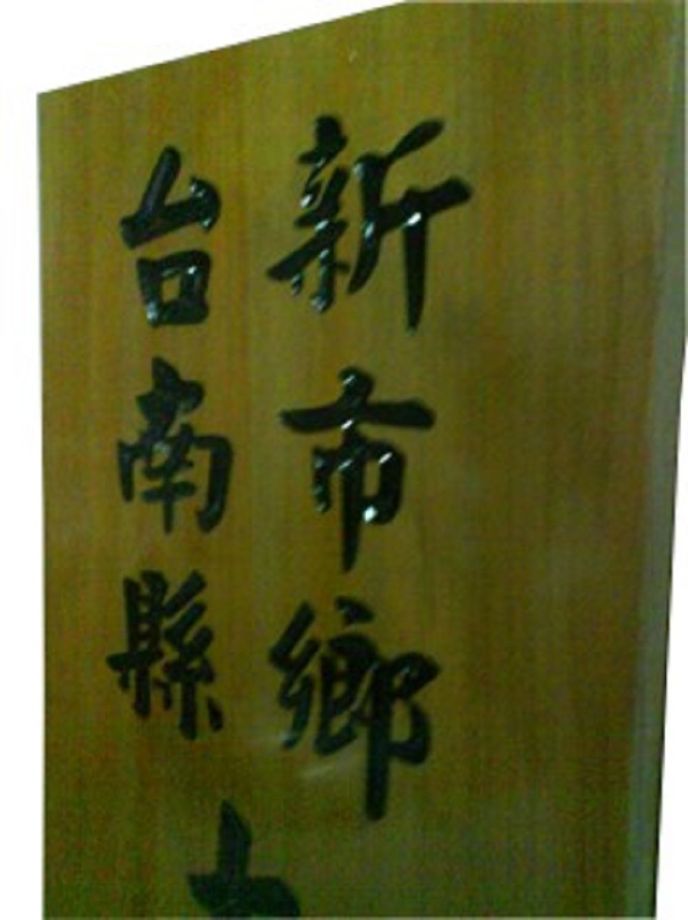 新市鄉
台南縣